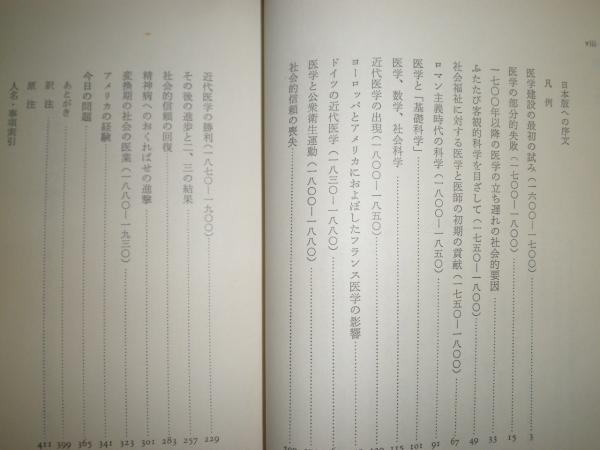 viii
日本版への序文
凡例
医学建設の最初の試み(一六〇〇―一七〇〇) 3
医学の部分的失敗(一七〇〇―一八〇〇) 15
一七〇〇年以降の医学の立ち遅れの社会的要因 33
ふたたび客観的科学を目ざして(一七五〇―一八〇〇) 49
社会福祉に対する医学と医師の初期の貢献(一七五〇―一八〇〇) 67
ロマン主義時代の科学(一八〇〇―一八五〇) 91
医学と「基礎科学」 101
医学、数学、社会科学 115
近代医学の出現(一八〇〇―一八五〇)
ヨーロッパとアメリカにおよぼしたフランス医学の影響
ドイツの近代医学(一八三〇―一八八〇)
医学と公衆衛生運動(一八〇〇―一八八〇)
社会的信頼の喪失
近代医学の勝利(一八七〇―一九〇〇) 229
その後の進歩と二、三の結果 257
社会的信頼の回復 283
精神病へのおくればせの進撃 301
変換期の社会の医業(一八八〇―一九三〇) 323
アメリカの経験 341
今日の問題 365
あとがき 399
訳注 411
原注
人名・事項索引